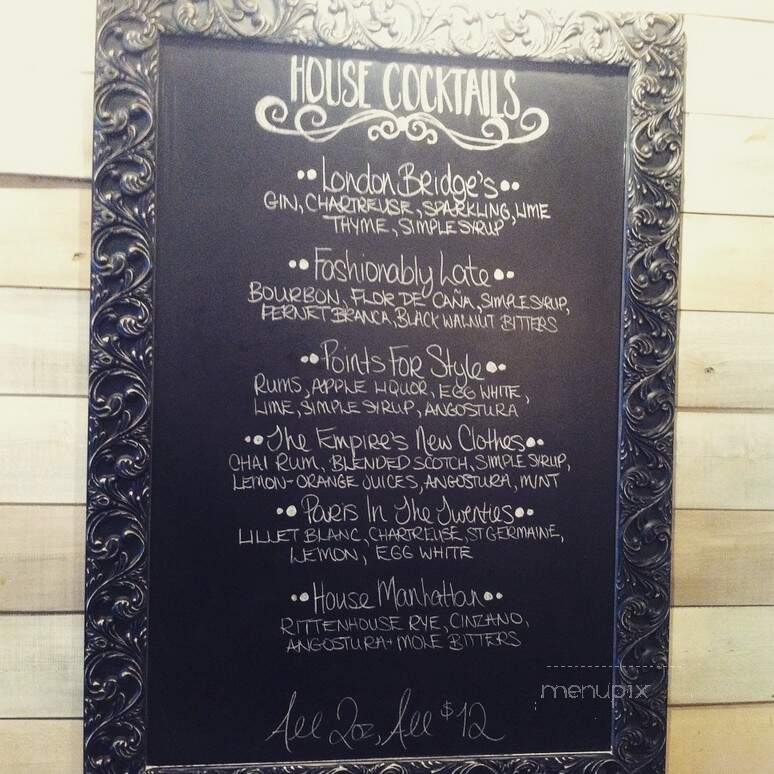 HOUSE COCKTAILS
London Bridge's
GIN, CHARTREUSE, SPARKLING, LIME
THYME, SIMPLE SYRUP
Fashionably Late
BOURBON, FLOR DE CAÑA, SIMPLE SYRUP,
FERNET BRANCA, BLACK WALNUT BITTERS
Points For Style
RUMS, APPLE LIQUOR, EGG WHITE,
LIME, SIMPLE SYRUP, ANGOSTURA
The Empire's New Clothes
CHAI RUM, BLENDED SCOTCH, SIMPLE SYRUP,
LEMON-ORANGE JUICES, ANGOSTURA, MINT
Paris In The Twenties
LILLET BLANC, CHARTREUSE, ST GERMAINE,
LEMON, EGG WHITE
House Manhattan
RITTENHOUSE RYE, CINZANO,
ANGOSTURA + MOLE BITTERS
All 2oz, All $12
menupix